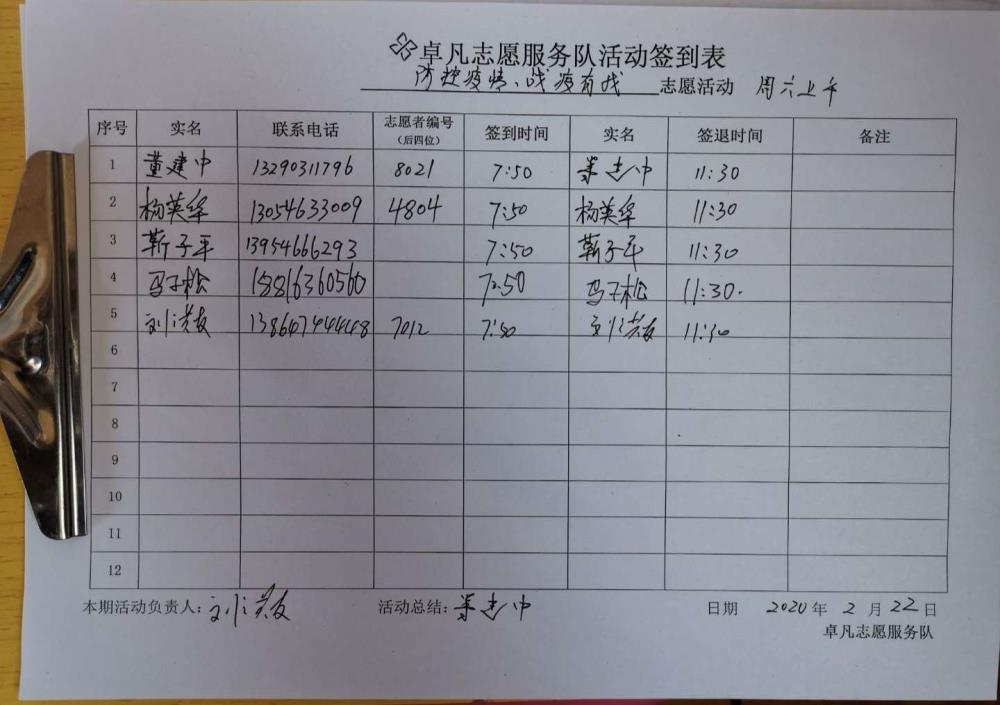 卓凡志愿服务队活动签到表
防控疫情、战疫有我 志愿活动 周六上午
序号 实名 联系电话 志愿者编号(后四位) 签到时间 实名 签退时间 备注
1 董建中 13290311796 8021 7:50 董建中 11:30
2 杨英华 13054633009 4804 7:50 杨英华 11:30
3 靳子平 13954666293 7:50 靳子平 11:30
4 马子松 15816360560 7:50 马子松 11:30.
5 刘洪友 13864744448 7012 7:50 刘洪友 11:30
6
7
8
9
10
11
12
本期活动负责人:刘洪友 活动总结:董建中 日期 2020年2月22日
卓凡志愿服务队